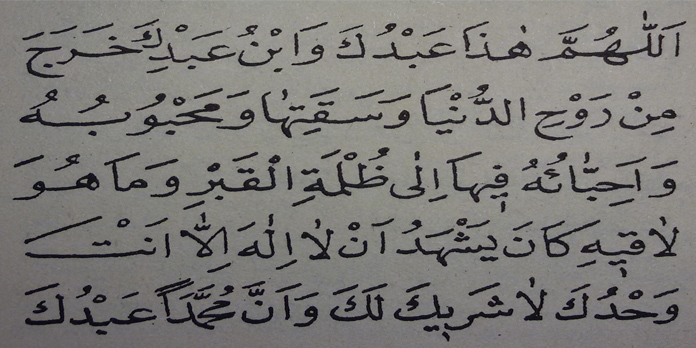 اَللّٰهُمَّ هٰذَا عَبْدُكَ وَابْنُ عَبْدِكَ خَرَجَ
مِنْ رَوْحِ الدُّنْيَا وَسَقَتِهَا وَمَحْبُوبُهُ
وَاَحِبَّائُهُ فِيهَا اِلٰى ظُلْمَةِ الْقَبْرِ وَمَا هُوَ
لَاقِيهِ كَانَ يَشْهَدُ اَنْ لَا اِلٰهَ اِلَّا اَنْتَ
وَحْدَكَ لَا شَرِيكَ لَكَ وَاَنَّ مُحَمَّدًا عَبْدُكَ